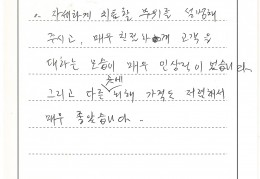 자세하게 치료할 부위를 설명해
주시고, 매우 친절하게 고객을
대하는 모습이 매우 인상적이 었습니다.
곳에
그리고 다른 비해 가격도 저렴해서
매우 좋았습니다.